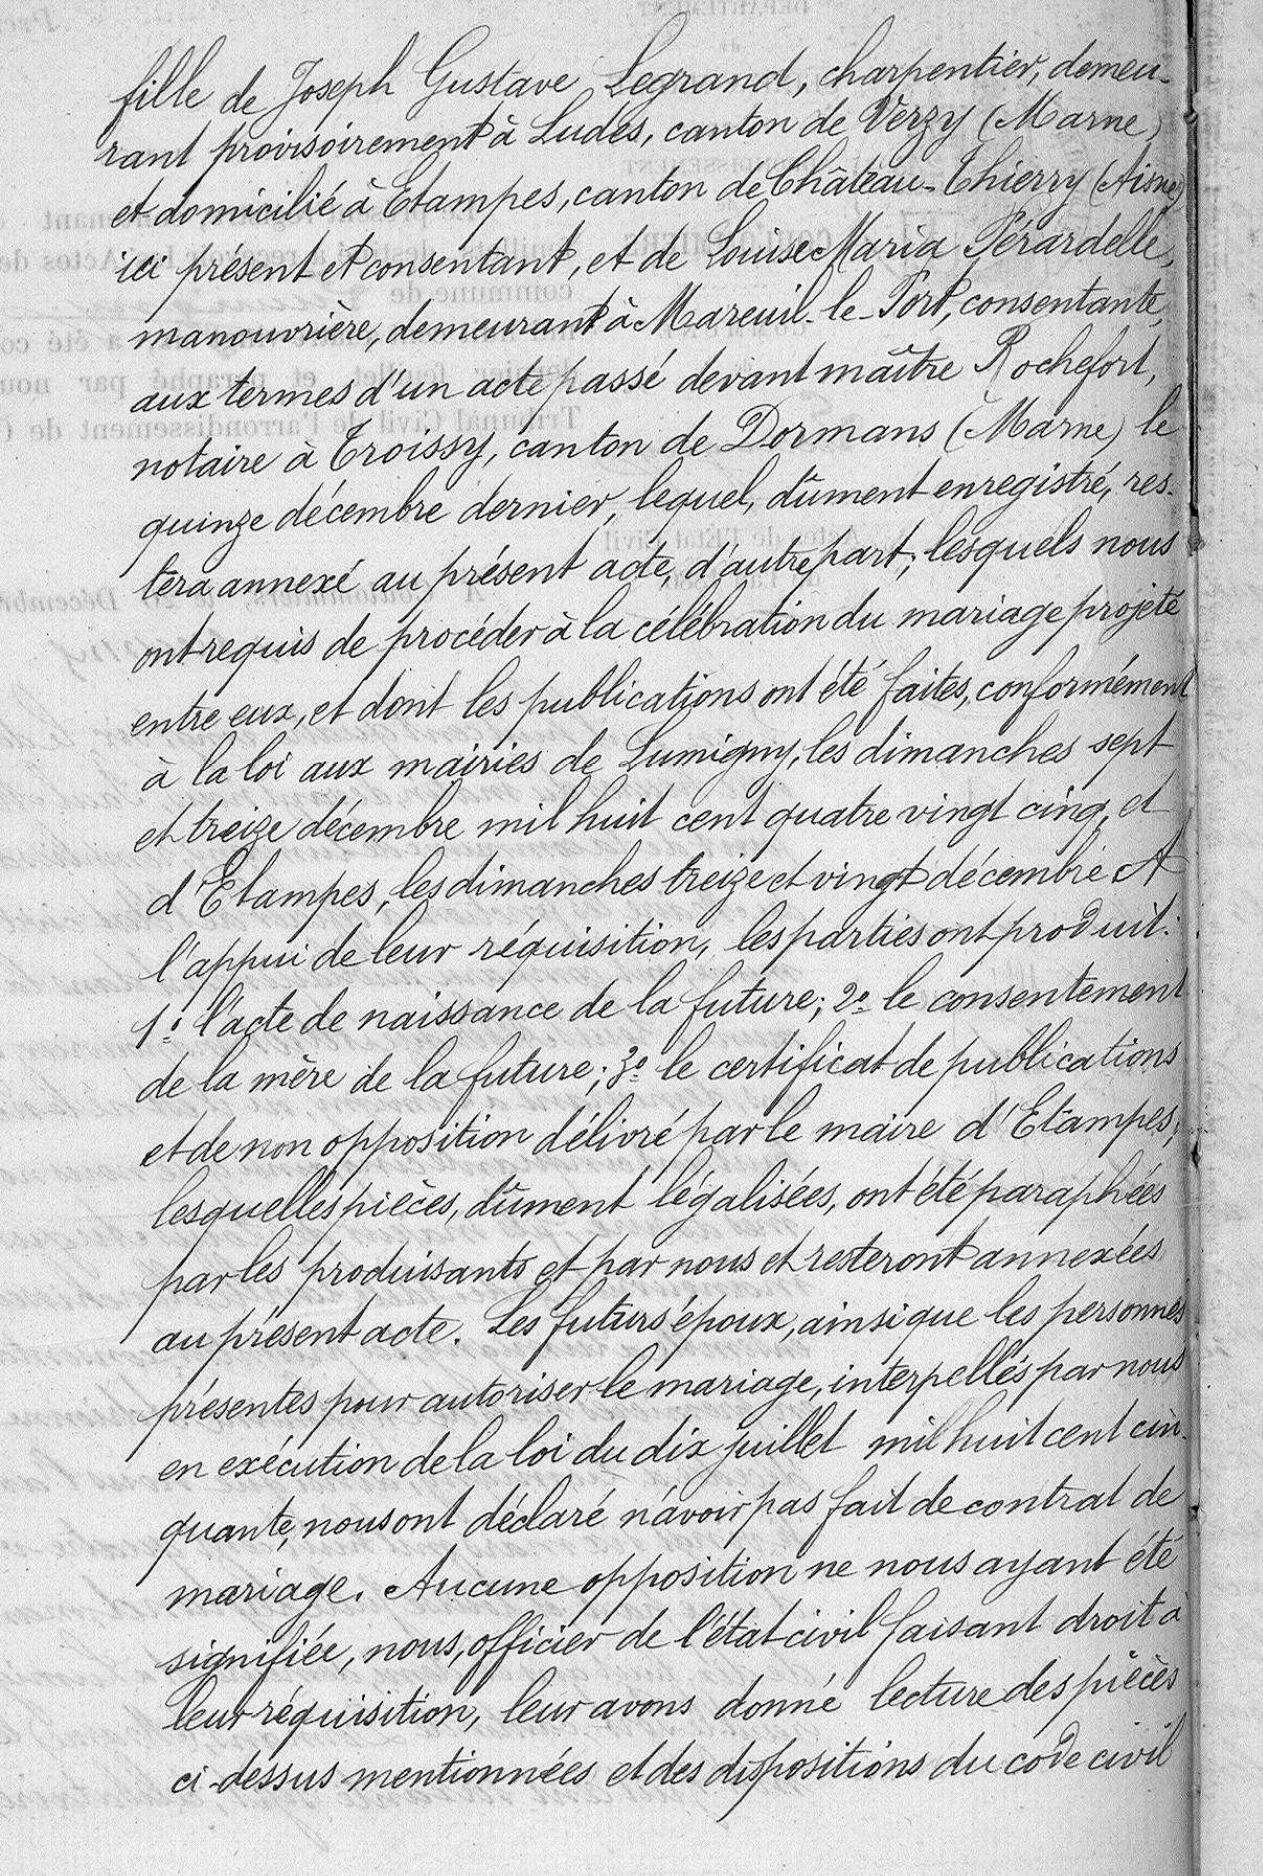 fille de Joseph Gustave Legrand, charpentier, demeu-
rant provisoirement à Ludes, canton de Verzy (Marne)
et domicilié à Etampes, canton de Château-Thierry (Aisne)
ici présent et consentant, et de Louise Maria Pérardelle,
manouvrière, demeurant à Mareuil-le-Port, consentante,
aux termes d'un acte passé devant maître Rochefort,
notaire à Troissy, canton de Dormans (Marne) le
quinze décembre dernier, lequel, dûment enregistré, res-
tera annexé au présent acte, d'autre part; lesquels nous
ont requis de procéder à la célébration du mariage projeté
entre eux, et dont les publications ont été faites, conformément
à la loi aux mairies de Lumigny, les dimanches sept
et treize décembre mil huit cent quatre vingt cinq, et
d'Etampes, les dimanches treize et vingt décembre A
l'appui de leur réquisition, les parties ont produit:
1º l'acte de naissance de la future; 2º le consentement
de la mère de la future; 3º le certificat de publications
et de non opposition délivré par le maire d'Etampes;
lesquelles pièces, dûment légalisées, ont été paraphées
par les produisants et par nous et resteront annexées
au présent acte. Les futurs époux, ainsi que les personnes
présentes pour autoriser le mariage, interpellés par nous
en exécution de la loi du dix juillet mil huit cent cin-
quante, nous ont déclaré n'avoir pas fait de contrat de
mariage. Aucune opposition ne nous ayant été
signifiée, nous, officier de l'état civil faisant droit à
leur réquisition, leur avons donné lecture des pièces
ci-dessus mentionnées et des dispositions du code civil